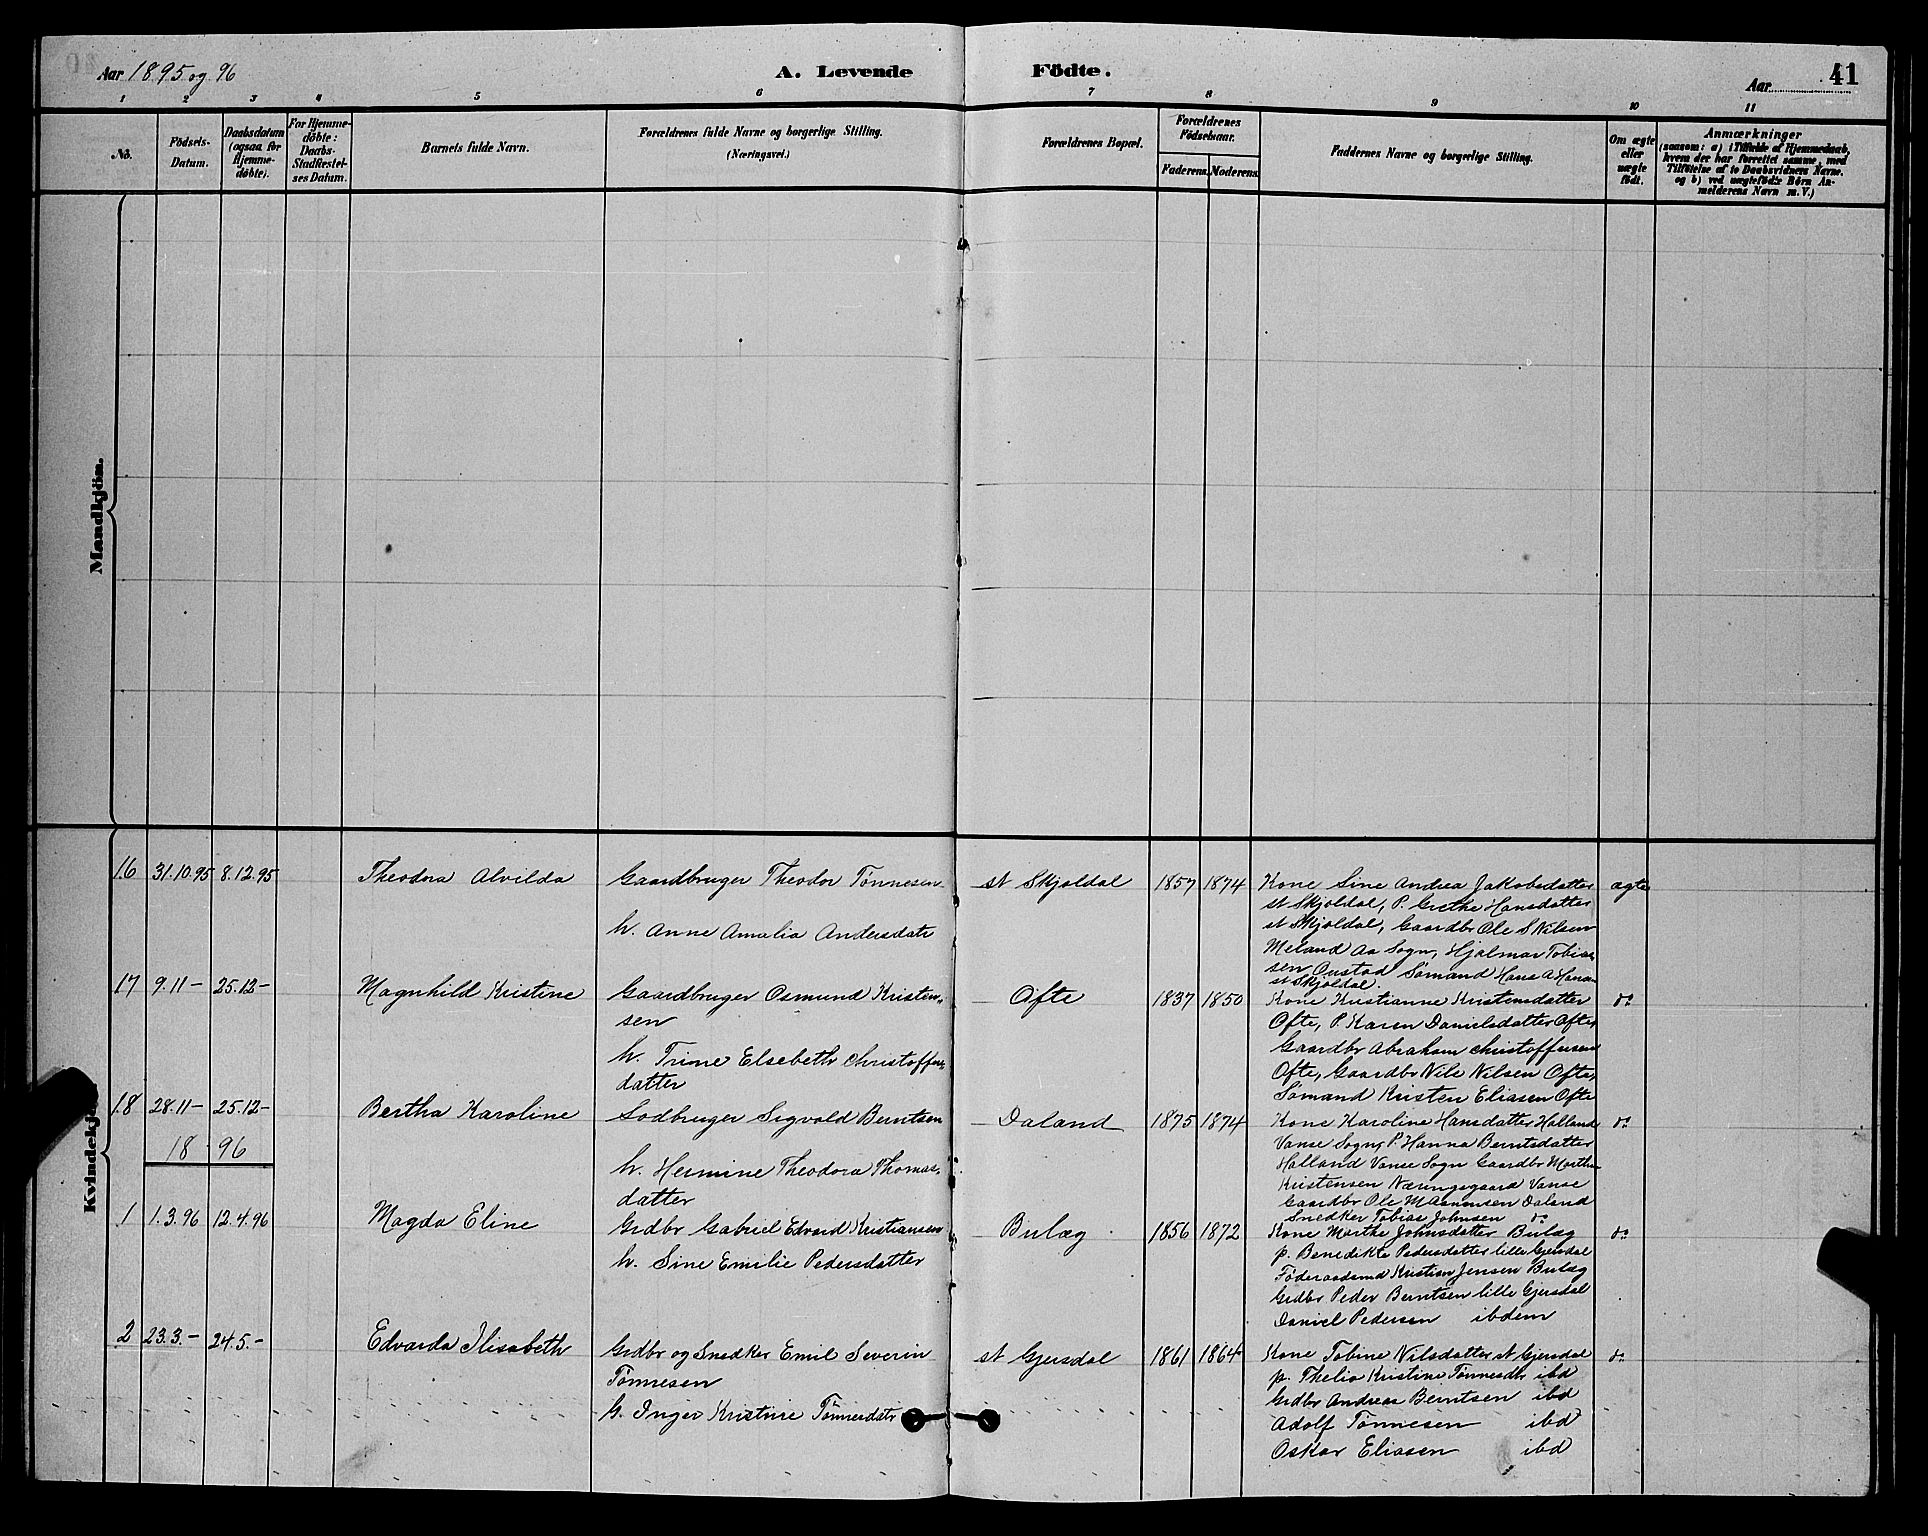 Aar 1895 og 96
A. Levende
Födte.
Aar
41
1 2 3 4 5 6 7 8 9 10 11
No.
Födsels-
Datum.
Daabsdatum
(ogsaa for
Hjemme-
döbte).
For Hjemme-
döbte:
Daabs-
Stadfestel-
ses Datum.
Barnets fulde Navn.
Forældrenes fulde Navne og borgerlige Stilling.
(Næringsvei.)
Forældrenes Bopæl.
Forældrenes
Födselsaar.
Faderens.
Moderens.
Faddernes Navne og borgerlige Stilling.
Om ægte
eller
uægte
födt.
Anmærkninger
(saasom: a) i Tilfælde af Hjemmedaab,
hvem der har forrettet samme, med
Tilföielse af to Daabsvidners Navne.
og b) ved uægtefödte Börn An-
melderens Navn m. V.)
Mandkjön.
Kvindekjön.
16 31.10.95 8.12.95 Theodora Alvilda
Gaardbruger Theodor Tønnesen
h. Anne Amalia Andersdatr
st Skjoldal 1857 1874
Kone Sine Andrea Jakobsdatter
st Skjoldal, P. Grethe Hansdatter
st Skjoldal, Gaardbr Ole S Nilsen
Meland Aa Sogn, Hjalmar Tobias
sen Sømand Hans A Hansen
st Skjoldal.
ægte
17 9.11- 25.12- Magnhild Kristine
Gaardbruger Osmund Kristen-
sen
h. Trine Elsebeth Christoffers-
datter
Ofte 1837 1850
Kone Kristianne Kristensdatter
Ofte, P. Karen Danielsdatter Ofte
Gaardbr Abraham Christoffersen
Ofte, Gaardbr Nils Nilsen Ofte,
Sømand Kristen Eliasen Ofte
do
18 28.11- 25.12- Bertha Karoline
Lodbruger Sigvald Berntsen
h. Hermine Theodora Thomas-
datter
Daland 1875 1874
Kone Karoline Hansdatter Halland
Vanse Sogn, P. Hanna Berntsdatter
Halland Vanse Sogn Gaardbr Marthi
Kristensen Næringsgaard Vanse
Gaardbr Ole M Asmunsen Daland
Snedker Tobias Johnsen do
do
18 96
1 1.3.96 12.4.96 Magda Eline
Grdbr Gabriel Edvard Kristiansen
h. Sine Emilie Pedersdatter
Bulæg 1856 1872
Kone Marthe Johnsdatter Bulæg
p. Benedikte Pedersdatter lille Gjersdal
Føderaadsmd Kristian Jensen Bulæg
Grdbr Peder Berntsen lille Gjersdal
Daniel Pedersen ibdem
do
2 23.3- 24.5- Edvarda Elisabeth
Grdbr og Snedker Emil Severin
Tønnesen
h. Inger Kristine Tønnesdatr
st Gjersdal 1861 1864
Kone Tobine Nilsdatter st Gjersdal
p. Thelia Kristine Tønnesdtr ibd
Grdbr Andreas Berntsen ibd
Adolf Tønnesen ibd
Oskar Eliasen ibd
do